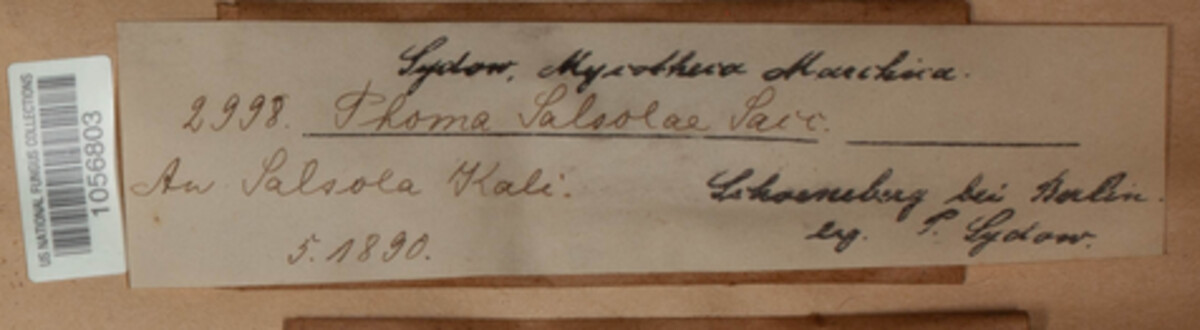 Sydow, Mycotheca Marchica.
2998. Phoma Salsolae Sacc.
An Salsola Kali.
Schoeneberg bei Berlin.
5. 1890.
leg. P. Sydow.
US NATIONAL FUNGUS COLLECTIONS
1056803